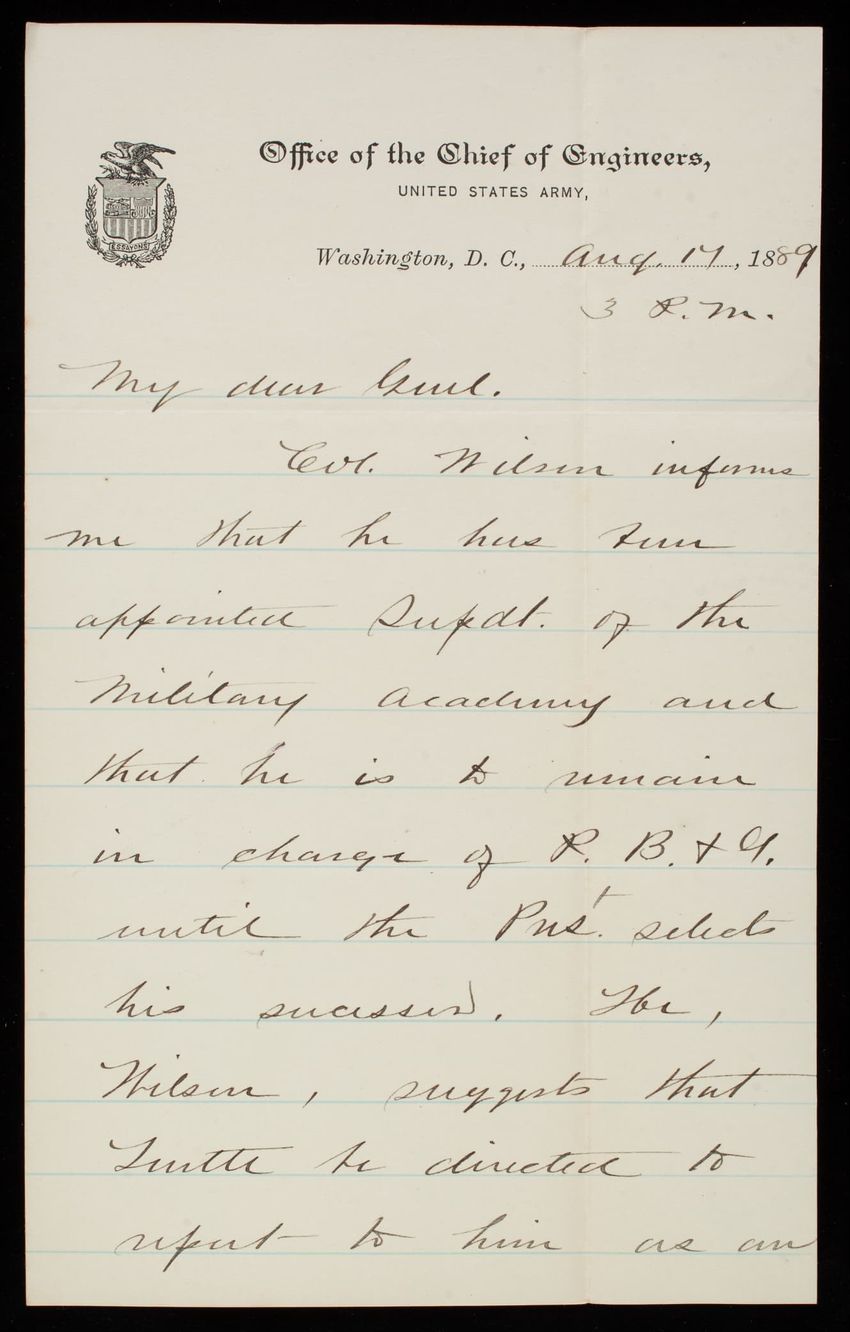 ESSAYONS
Office of the Chief of Engineers,
UNITED STATES ARMY,
Washington, D. C., Aug. 17, 1889
3 P.M.
My dear Genl.
Col. Wilson informs
me that he has been
appointed Supdt. of the
Military Academy and
that he is to remain
in charge of P. B. & G.
until the Prest. selects
his sucessor. He,
Wilson, suggests that
be directed to
report to him as an